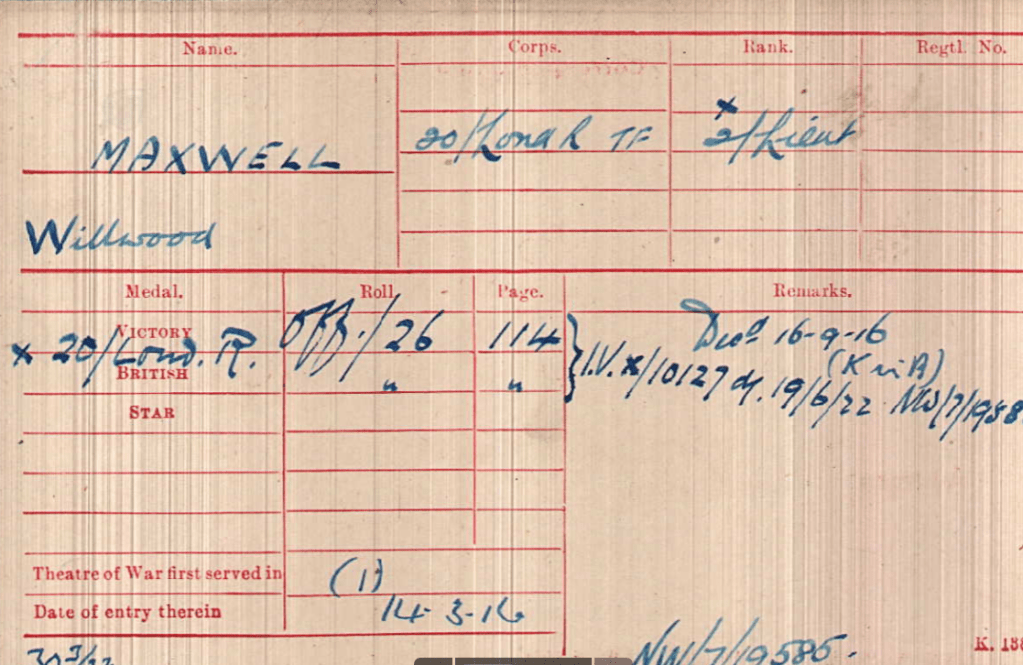 Name. Corps. Rank. Regtl. No.
MAXWELL 20/Lond R TF x 2/Lieut
Willwood
Medal. Roll Page. Remarks.
VICTORY Off/26 114 Decd 16-9-16
x 20/Lond. R. (K in A)
BRITISH " " } I.V. x/10127 d. 19/6/22 NW/7/1958
STAR
Theatre of War first served in (1)
Date of entry therein 14-3-16
NW/7/19585.
K. 138